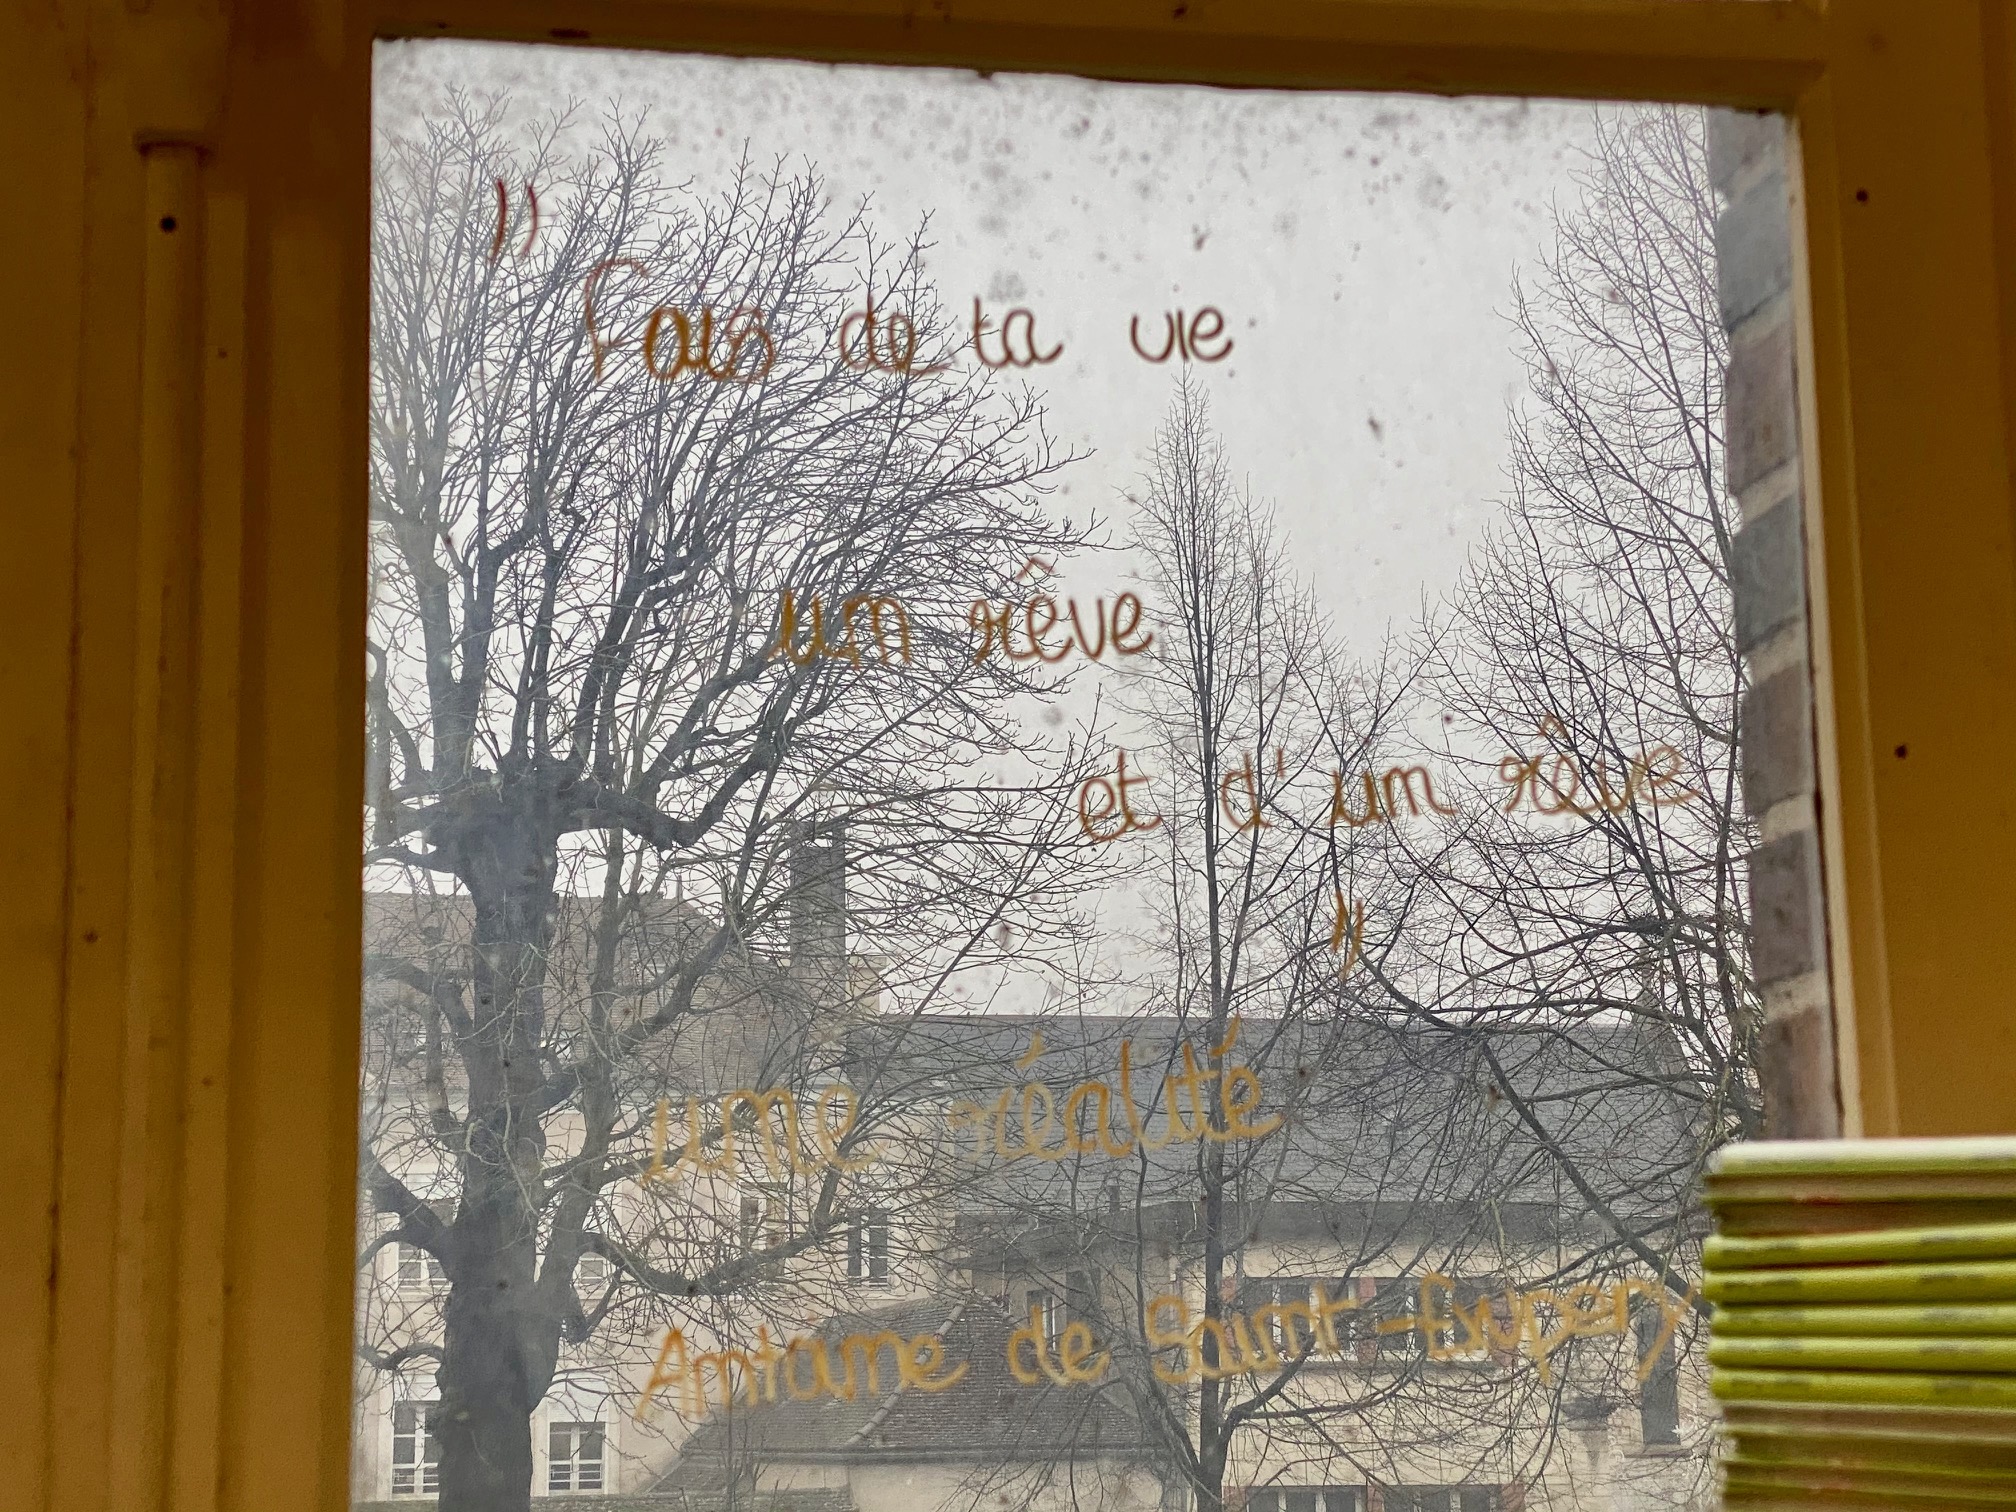 " Fais de ta vie
un rêve
et d'un rêve
une réalité "
Antoine de Saint-Exupéry